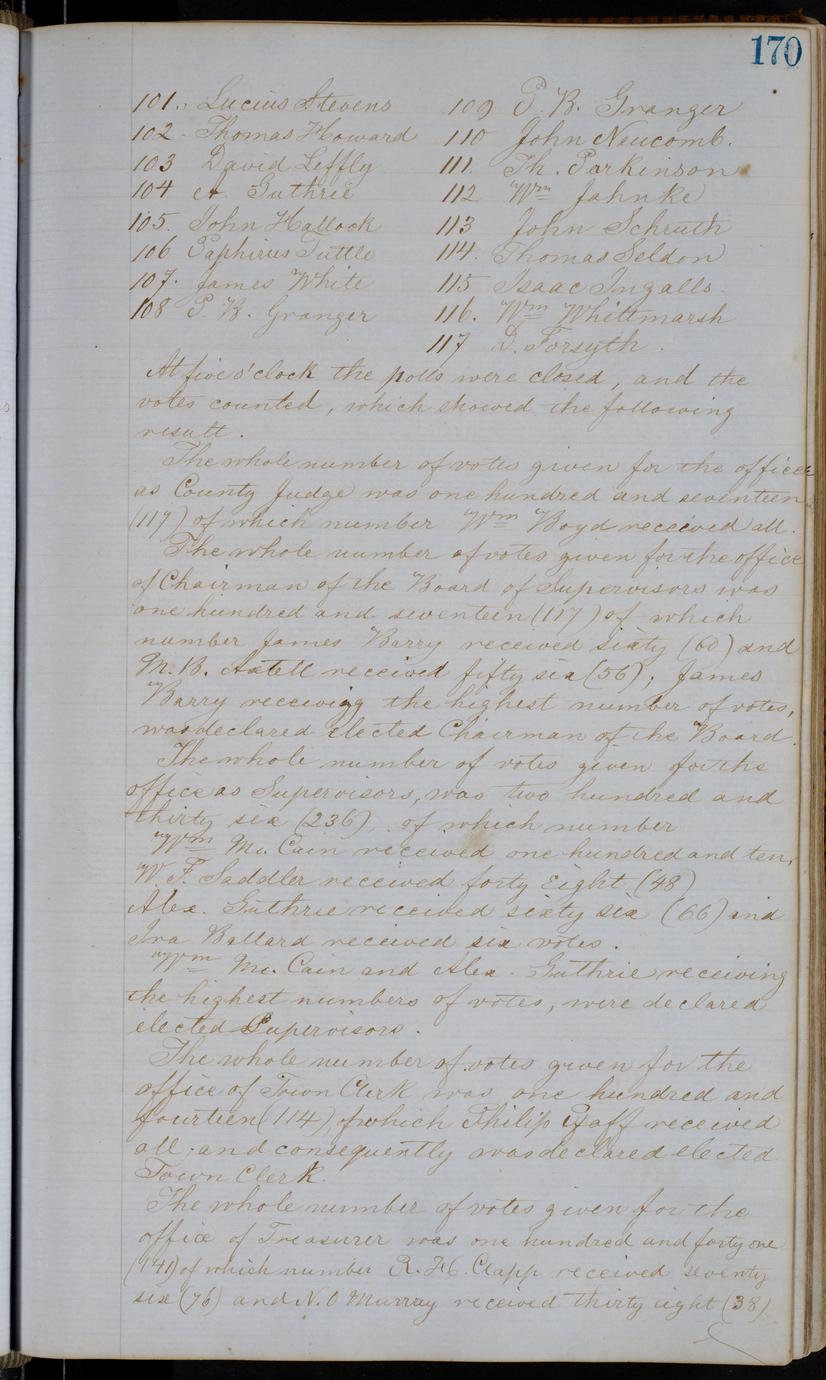 170
101. Lucius Stevens
102. Thomas Howard
103 David Leffly
104 A. Guthrie
105. John Hallock
106 Paphirus Tuttle
107. James White
108 P. B. Granger
109 P. B. Granger
110 John Neucomb.
111. Th. Parkinson
112 Wm Jahnke
113 John Schruth
114. Thomas Seldon
115 Isaac Ingalls.
116. Wm Whittmarsh
117 D. Forsyth.
At five o'clock the polls were closed, and the
votes counted, which showed the following
result.
The whole number of votes given for the office
as County Judge was one hundred and seventeen
(117) of which number Wm Boyd received all.
The whole number of votes given for the office
of Chairman of the Board of Supervisors was
one hundred and seventeen (117) of which
number James Barry received sixty (60) and
M. B. received fifty six (56); James
Barry receivigg the highest number of votes,
was declared elected Chairman of the Board.
The whole number of votes given for the
office as Supervisors, was two hundred and
thirty six (236), of which number
Wm Mc. Cain received one hundred and ten,
W. F. Saddler received forty Eight (48)
Alex. Guthrie received sixty six (66) and
Ira Ballard received six votes.
Wm Mc. Cain and Alex. Guthrie receiving
the highest numbers of votes, were declared
elected Supervisors.
The whole number of votes given for the
office of Town Clerk was one hundred and
fourteen (114) of which Philip Pfaff received
all, and consequently was declared elected
Town Clerk.
The whole number of votes given for the
office of Treasurer was one hundred and forty one
(141) of which number R. H. Clapp received seventy
six (76) and N. O Murray received thirty eight (38)